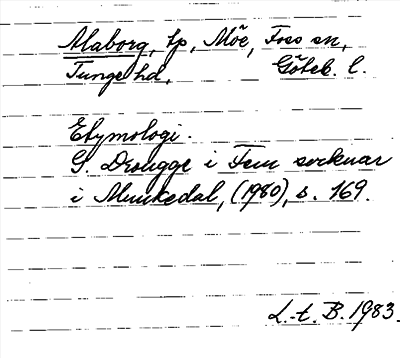 Alaborg, lp, Möe, Foss sn,
Tunge hd, Göteb. l.
Etymologi.
G. Drougge i Fem socknar
i Munkedal, (1980), s. 169.
L.-t. B. 1983.